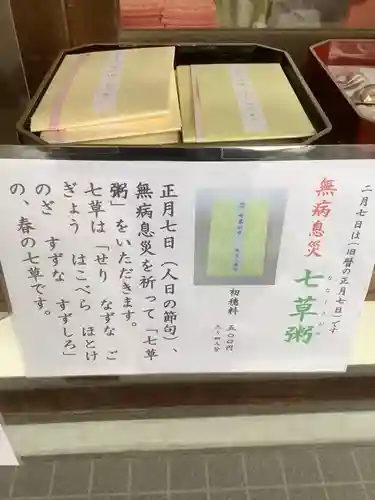 二月七日は(旧暦の正月七日)です
無病息災
七草粥
初穂料 五〇〇円
正月七日(人日の節句)、
無病息災を祈って「七草
粥」をいただきます。
七草は「せり なずな ご
ぎょう はこべら ほとけ
のざ すずな すずしろ」
の、春の七草です。